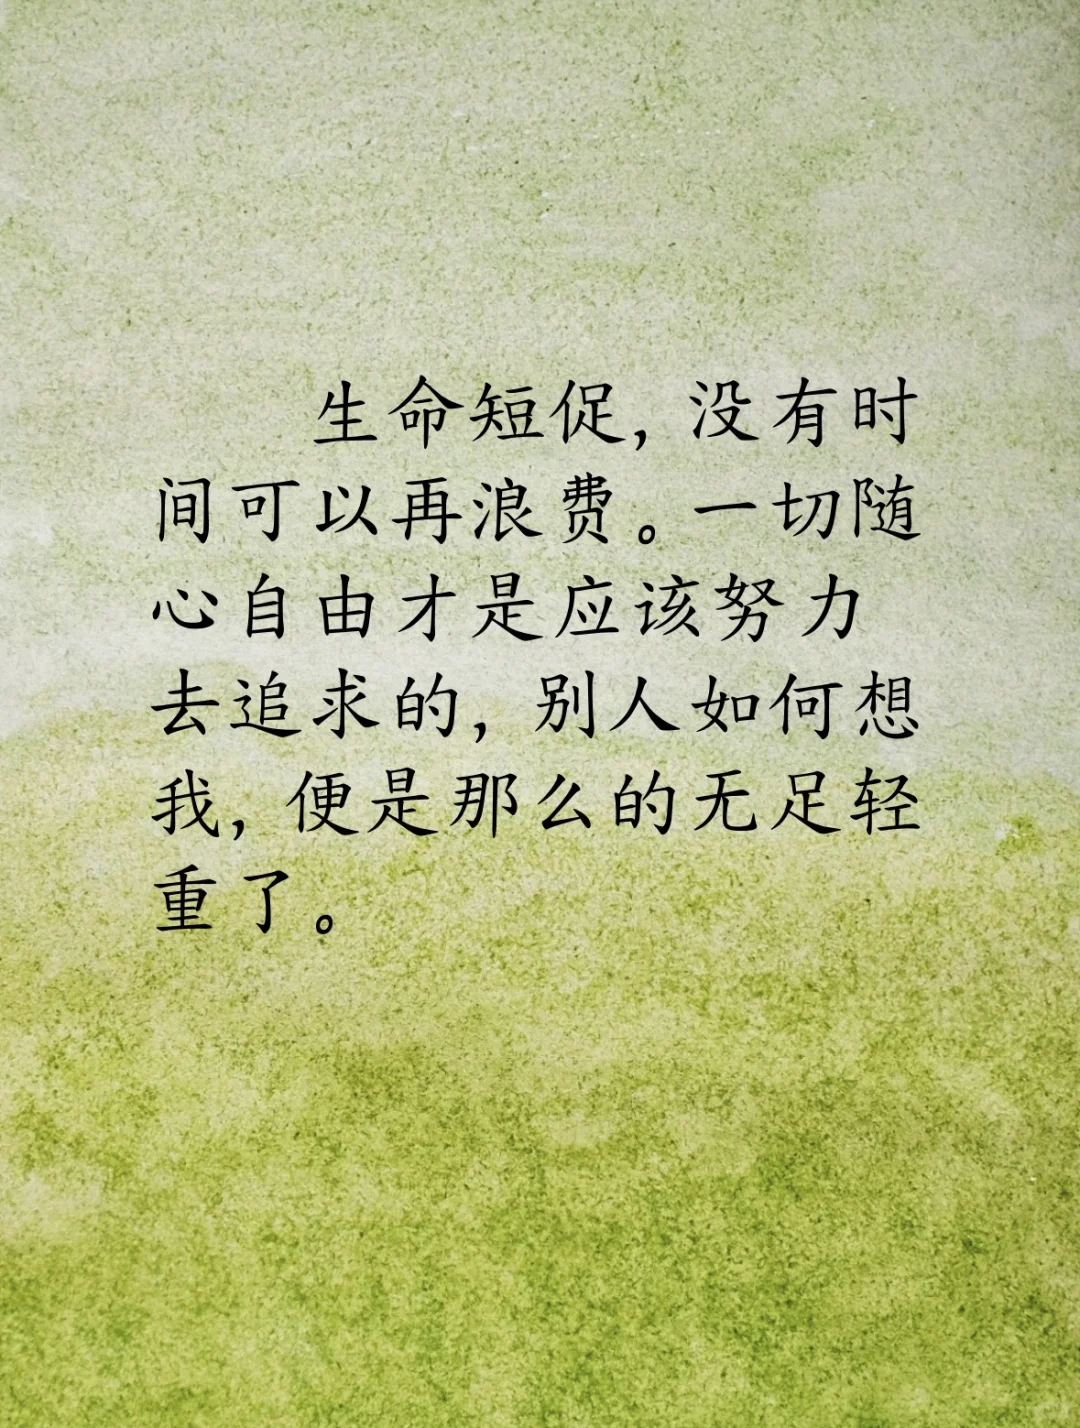 生命短促，没有时
间可以再浪费。一切随
心自由才是应该努力
去追求的，别人如何想
我，便是那么的无足轻
重了。